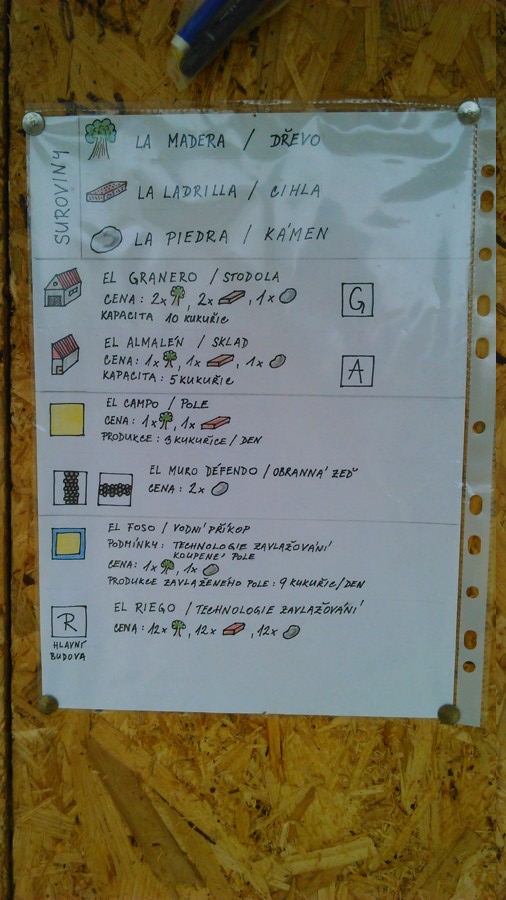 SUROVINY
LA MADERA / DŘEVO
LA LADRILLA / CIHLA
LA PIEDRA / KÁMEN
EL GRANERO / STODOLA
CENA: 2x , 2x , 1x
KAPACITA 10 KUKUŘIC
G
EL ALMALEŃ / SKLAD
CENA: 1x , 1x , 1x
KAPACITA: 5 KUKUŘIC
A
EL CAMPO / POLE
CENA: 1x , 1x
PRODUKCE: 3 KUKUŘICE / DEN
EL MURO DEFENDO / OBRANNÁ ZEĎ
CENA: 2x
EL FOSO / VODNÍ PŘÍKOP
PODMÍNKY: TECHNOLOGIE ZAVLAŽOVÁNÍ
KOUPENÉ POLE
CENA: 1x , 1x
PRODUKCE ZAVLAŽENÉHO POLE: 9 KUKUŘIC / DEN
EL RIEGO / TECHNOLOGIE ZAVLAŽOVÁNÍ
CENA: 12x , 12x , 12x
R
HLAVNÍ
BUDOVA